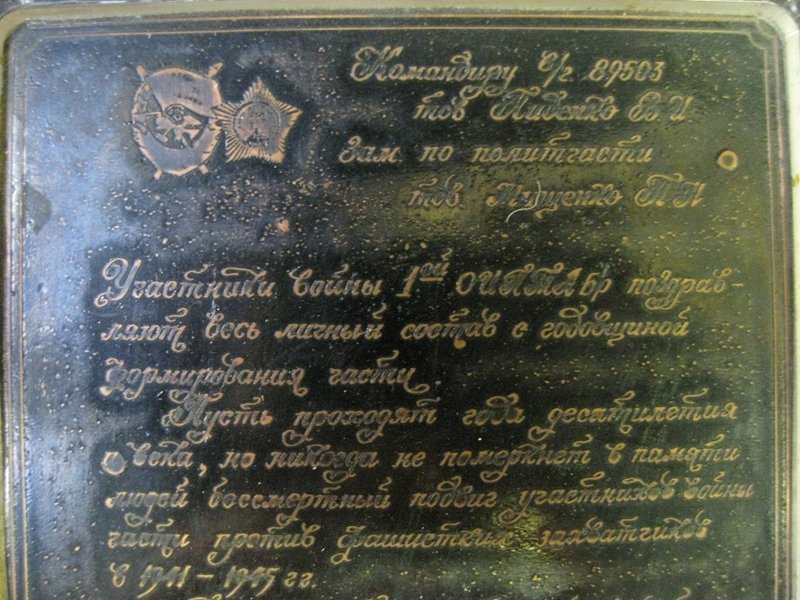 Командиру в/г 89503
тов Пивенко В И
Зам по политчасти
тов П Н
Участники войны 1ой ОИПТАБр поздрав-
ляют весь личный состав с годовщиной
формирования части.
Пусть проходят года десятилетия
и века, но никогда не померкнет в памяти
людей бессмертный подвиг участников войны
части против фашистких захватчиков
в 1941-1945 гг.